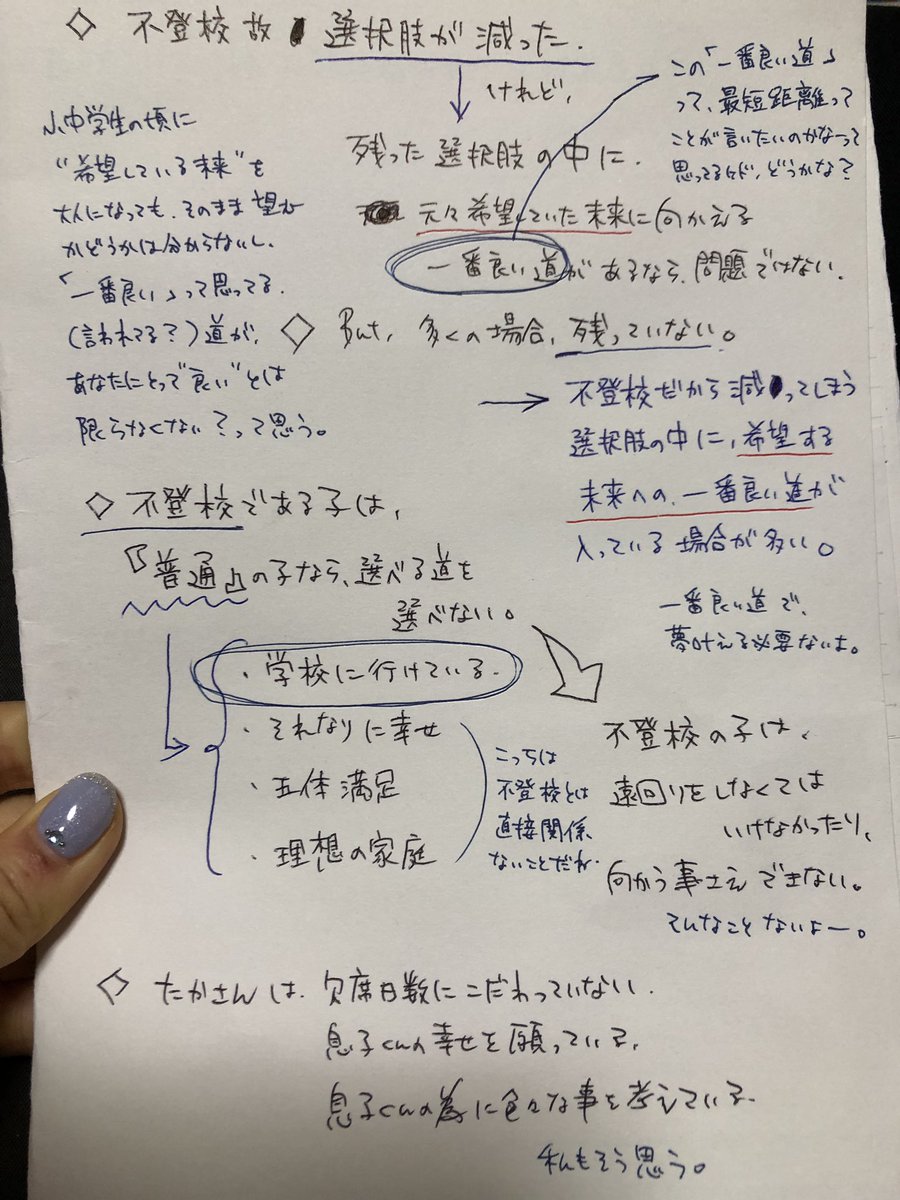 ◇ 不登校故 選択肢が減った.
けれど、
残った選択肢の中に.
元々希望していた未来に向かえる
一番良い道があるなら、問題ではない.
この「一番良い道」
って、最短距離って
ことが言いたいのかなーって
思ってるケド、どうかな?
小、中学生の頃に
"希望している未来"を
大人になっても、そのまま望む
かどうかは分からないし.
「一番良い」って思ってる.
(言われてる?)道が、
あなたにとって"良い"とは
限らなくない?って思う。
◇ But, 多くの場合、残っていない。
→ 不登校だから減ってしまう
選択肢の中に、希望する
未来への、一番良い道が
入っている場合が多い。
一番良い道で、
夢叶える必要ないよ。
◇ 不登校である子は、
『普通』の子なら、選べる道を
選べない。
・学校に行けている.
・それなりに幸せ
・五体満足
・理想の家庭
こっちは
不登校とは
直接関係
ないことだね.
不登校の子は、
遠回りをしなくては
いけなかったり、
向かう事さえできない。
そんなことないよー。
◇ たかさんは、欠席日数にこだわっていない.
息子くんの幸せを願っている,
息子くんの為に色々な事を考えている.
私もそう思う。